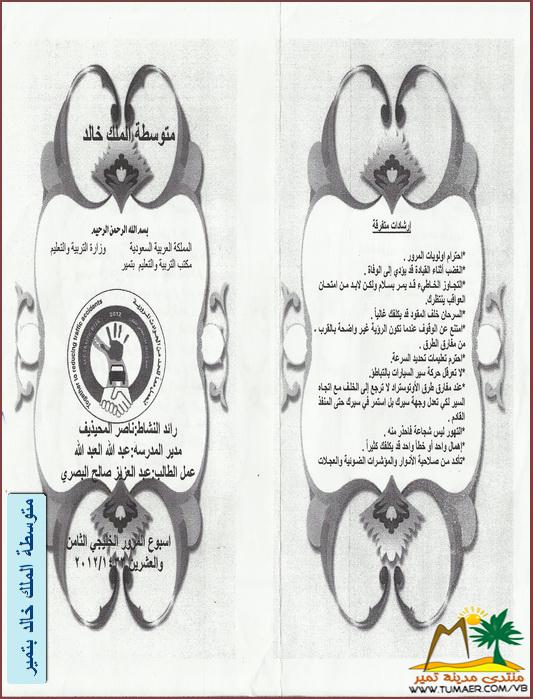 متوسطة الملك خالد
بسم الله الرحمن الرحيم
المملكة العربية السعودية وزارة التربية والتعليم
مكتب التربية والتعليم بتمير
Together to reducing traffic accidents
2012
رائد النشاط:ناصر المحيذيف
مدير المدرسة:عبد الله العبد الله
عمل الطالب:عبد العزيز صالح البصري
اسبوع المرور الخليجي الثامن
والعشرين
متوسطة الملك خالد بتمير
إرشادات متفرقة
*احترام اولويات المرور .
*الغضب أثناء القيادة قد يؤدي إلى الوفاة .
*التجاوز الخاطيء قد يمر بسلام ولكن لابد من امتحان
العواقب ينتظرك.
*السرحان خلف المقود قد يكلفك غالياً .
*امتنع عن الوقوف عندما تكون الرؤية غير واضحة بالقرب ،
من مفارق الطرق .
*احترم تعليمات تحديد السرعة.
*لا تعرقل حركة سير السيارات بالتباطؤ.
*عند مفارق طرق الأوتوستراد لا ترجع إلى الخلف مع اتجاه
السير لكي تعدل وجهة سيرك بل استمر في سيرك حتى المنفذ
القادم .
*التهور ليس شجاعة فاحذر منه .
*إهمال واحد أو خطأ واحد قد يكلفك كثيراً .
*تأكد من صلاحية الأنوار والمؤشرات الضوئية والعجلات
منتدى مدينة تمير
WWW.TUMAER.COM/VB